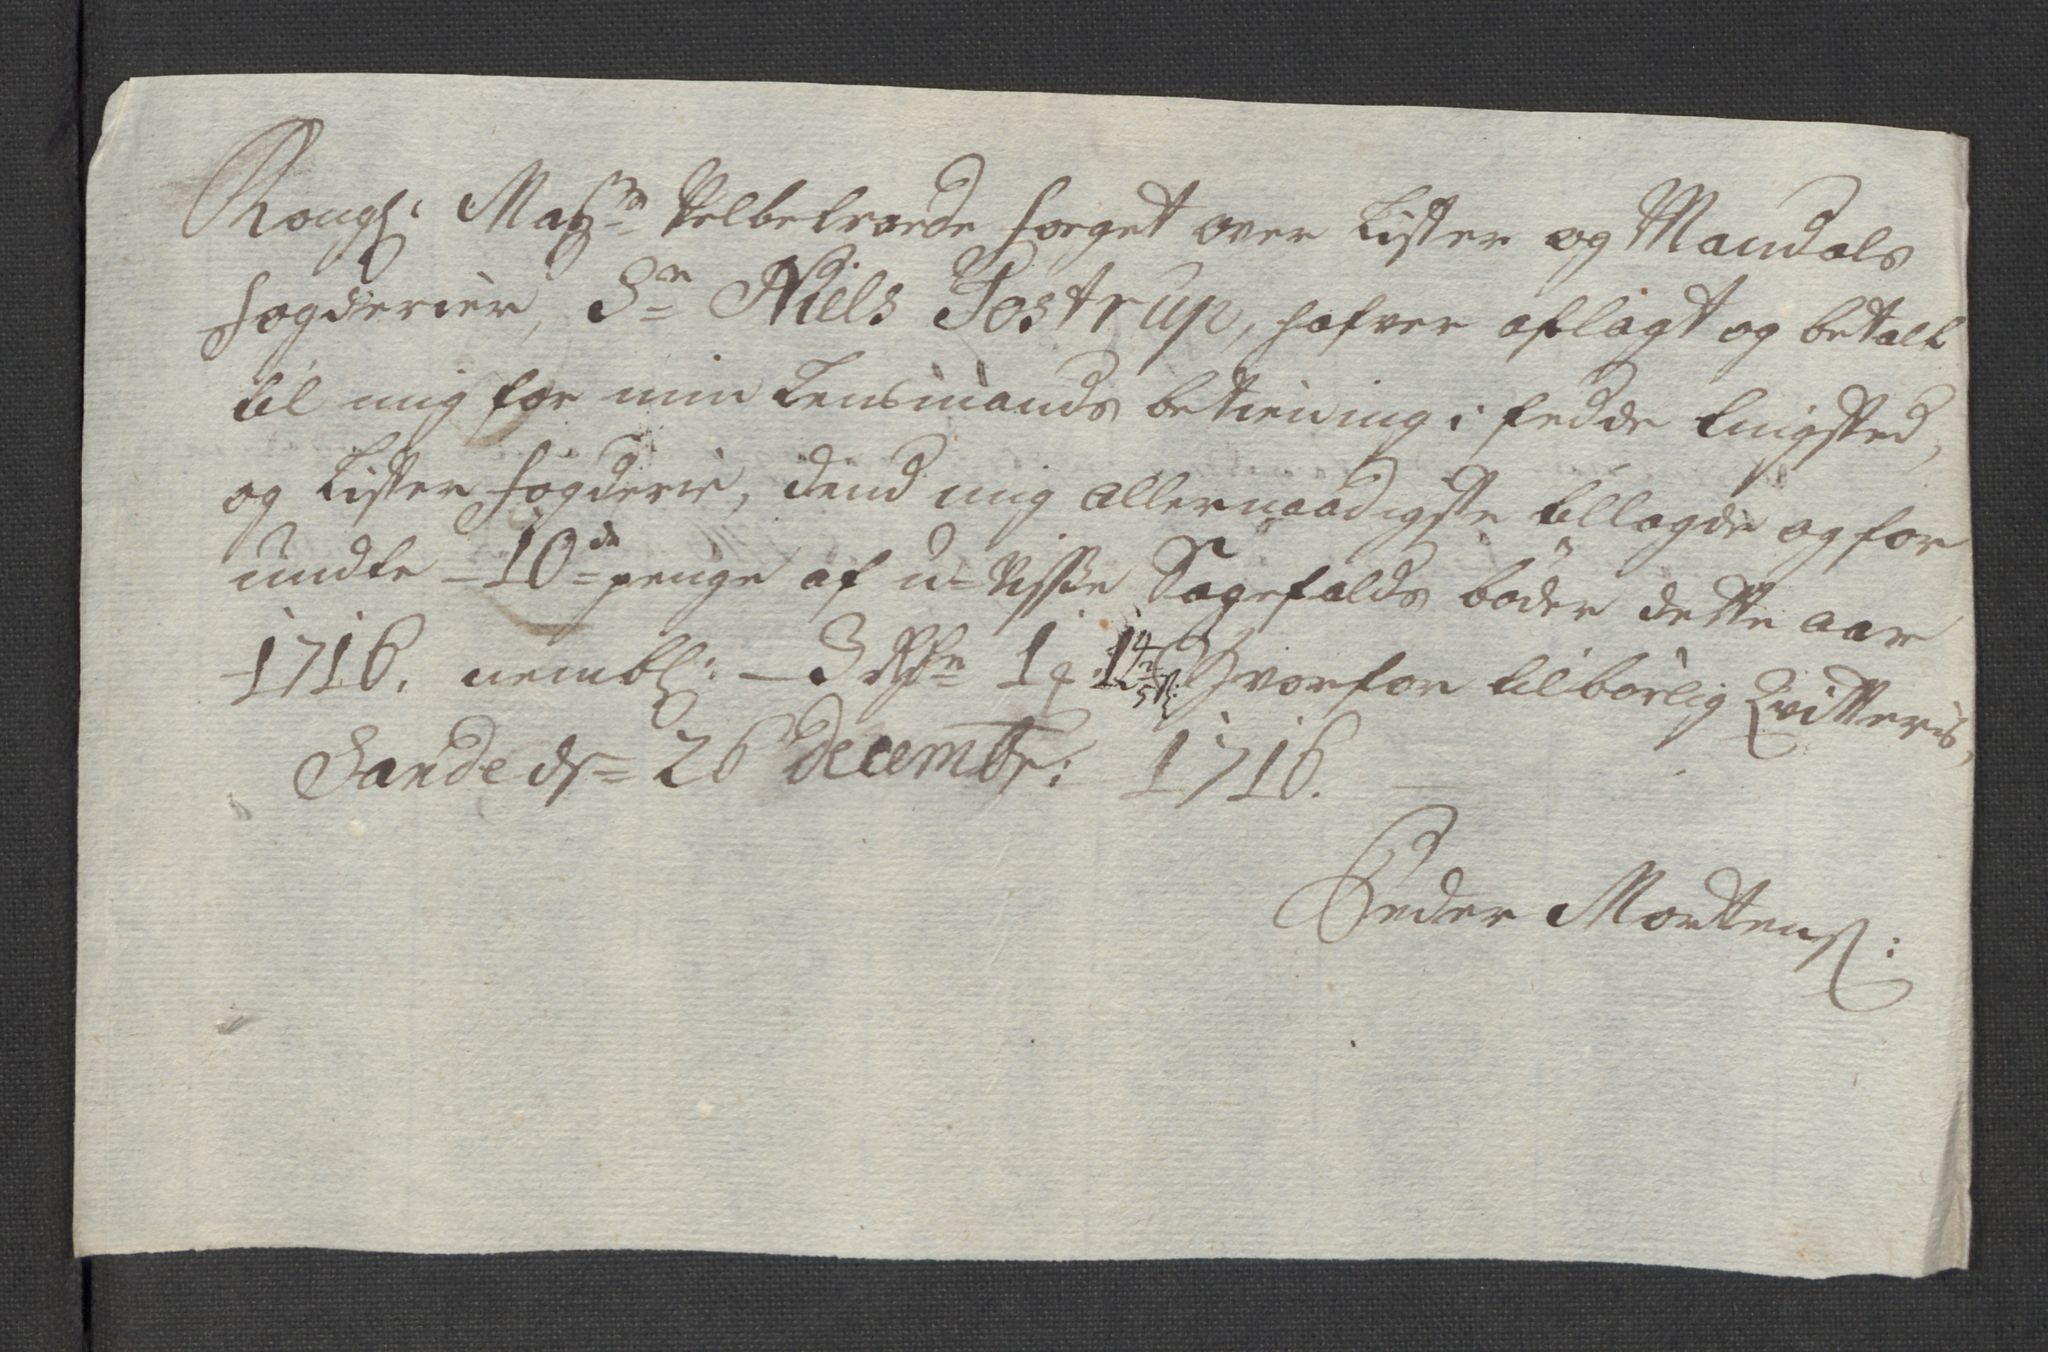 Kongl: May:ts Velbetroede foeget over Lister og Mandals
fogderier, Sr Niels Tostrup, hafver aflagt og betalt
til mig for min Lensmands betiening i fedde Lingsted,
og Lister fogderie, dend mig allernaadigste tillagde og for
undte - 10de penge af u-visse Sagefalds bøder dette aar
1716. nembl: - 3 Rdr 1 14 Hvorfor tilbørlig Qvitteris,
Sande ds 26 decembr: 1716.
Peder Mortens: